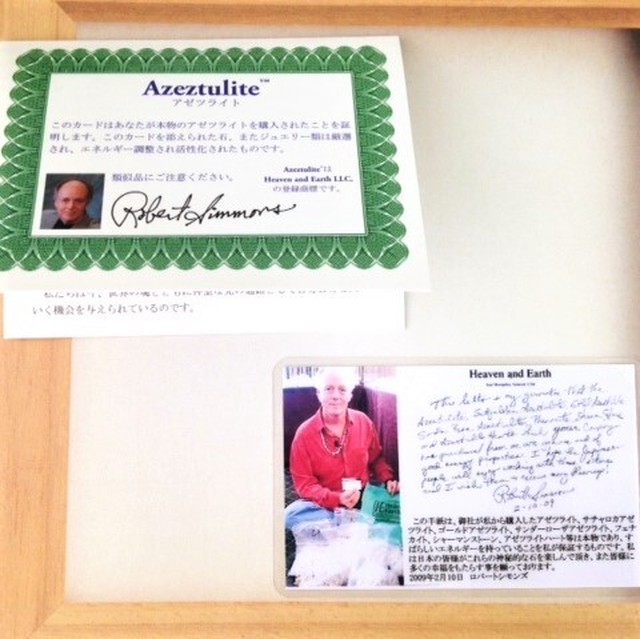 Azeztulite™
アゼツライト
このカードはあなたが本物のアゼツライトを購入されたことを証
明します。このカードを添えられた石、またジュエリー類は厳選
され、エネルギー調整され活性化されたものです。
類似品にご注意ください。
Azeztulite は
Heaven and Earth LLC.
の登録商標です。
Robert Simmons
いく機会を与えられているのです。
Heaven and Earth
This letter is my guarantee that the
Azeztulite,
and I wish them to receive many blessings!
Robert Simmons
2-10-09
この手紙は、御社が私から購入したアゼツライト、サチャロカアゼ
ツライト、ゴールドアゼツライト、サンダーローザアゼツライト、フェナ
カイト、シャーマンストーン、アゼツライトハート等は本物であり、す
ばらしいエネルギーを持っていることを私が保証するものです。私
は日本の皆様がこれらの神秘的な石を楽しんで頂き、また皆様に
多くの幸福をもたらす事を願っております。
2009年2月10日 ロバートシモンズ